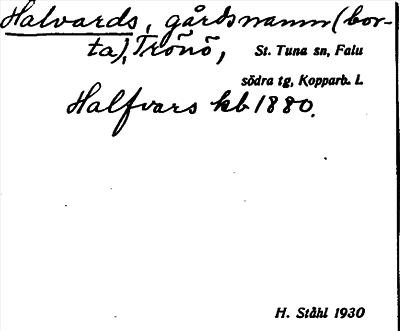 Halvards, gårdsnamn (bor-
ta), Trönö, St. Tuna sn, Falu
södra tg, Kopparb. L
Halfvars kb 1880.
H. Ståhl 1930